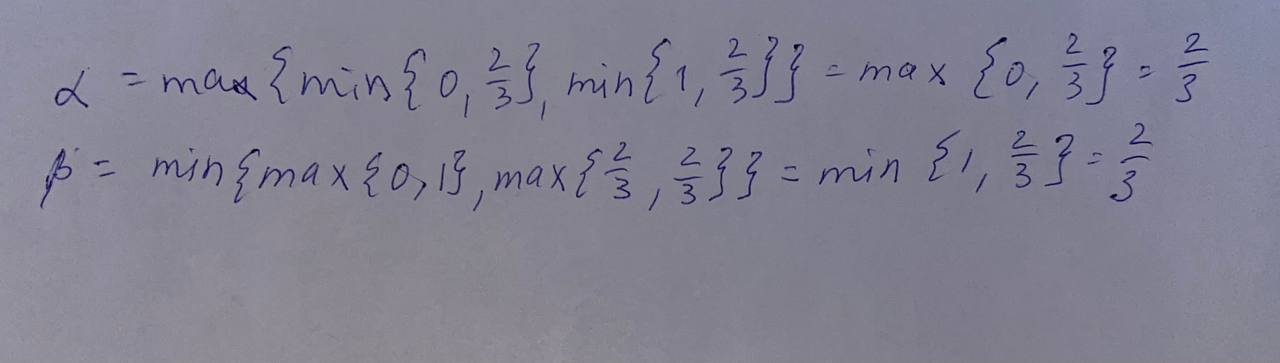 α = max{min{0, 2/3}, min{1, 2/3}} = max {0, 2/3} = 2/3
β = min{max{0, 1}, max{2/3, 2/3}} = min {1, 2/3} = 2/3